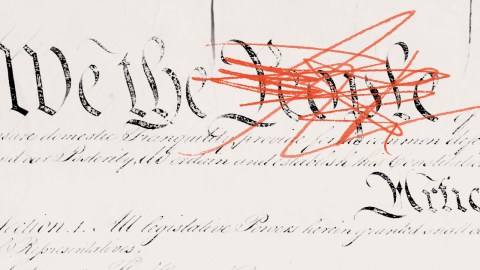 We the People of
sure domestic Tranquility, provide for the common
our Posterity, do ordain and establish this
Artic
Section. 1. All legislative Powers herein granted shall
Representatives.